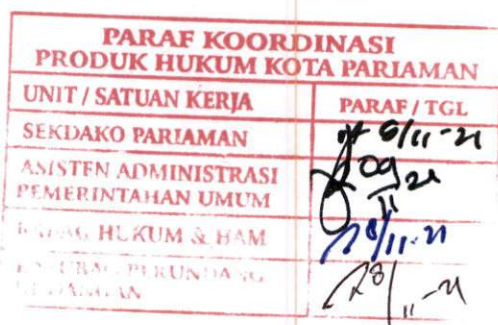 PARAF KOORDINASI
PRODUK HUKUM KOTA PARIAMAN
UNIT / SATUAN KERJA PARAF / TGL
SEKDAKO PARIAMAN 6/11-21
ASISTEN ADMINISTRASI
PEMERINTAHAN UMUM 09/11 21
HUKUM & HAM 8/11-21
8/11-21